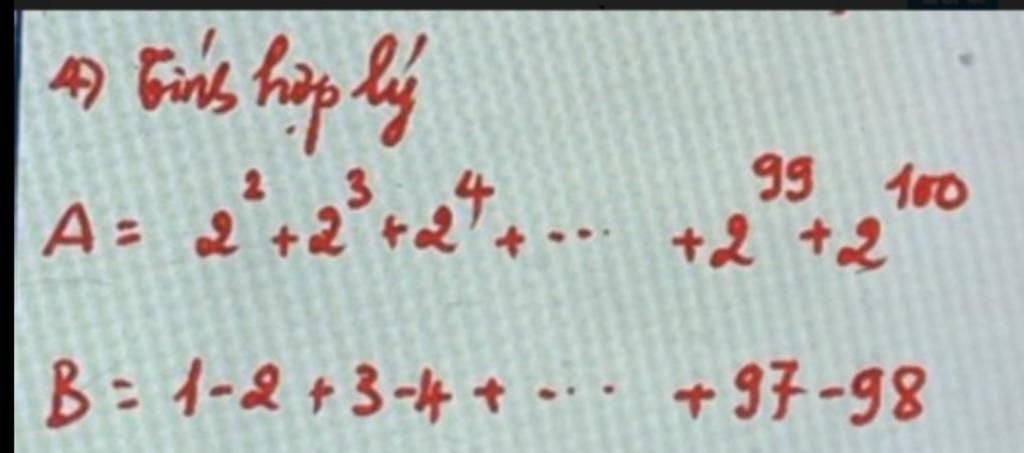 4) Tính hợp lý
A = 2² + 2³ + 2⁴ + ... + 2⁹⁹ + 2¹⁰⁰
B = 1 - 2 + 3 - 4 + ... + 97 - 98